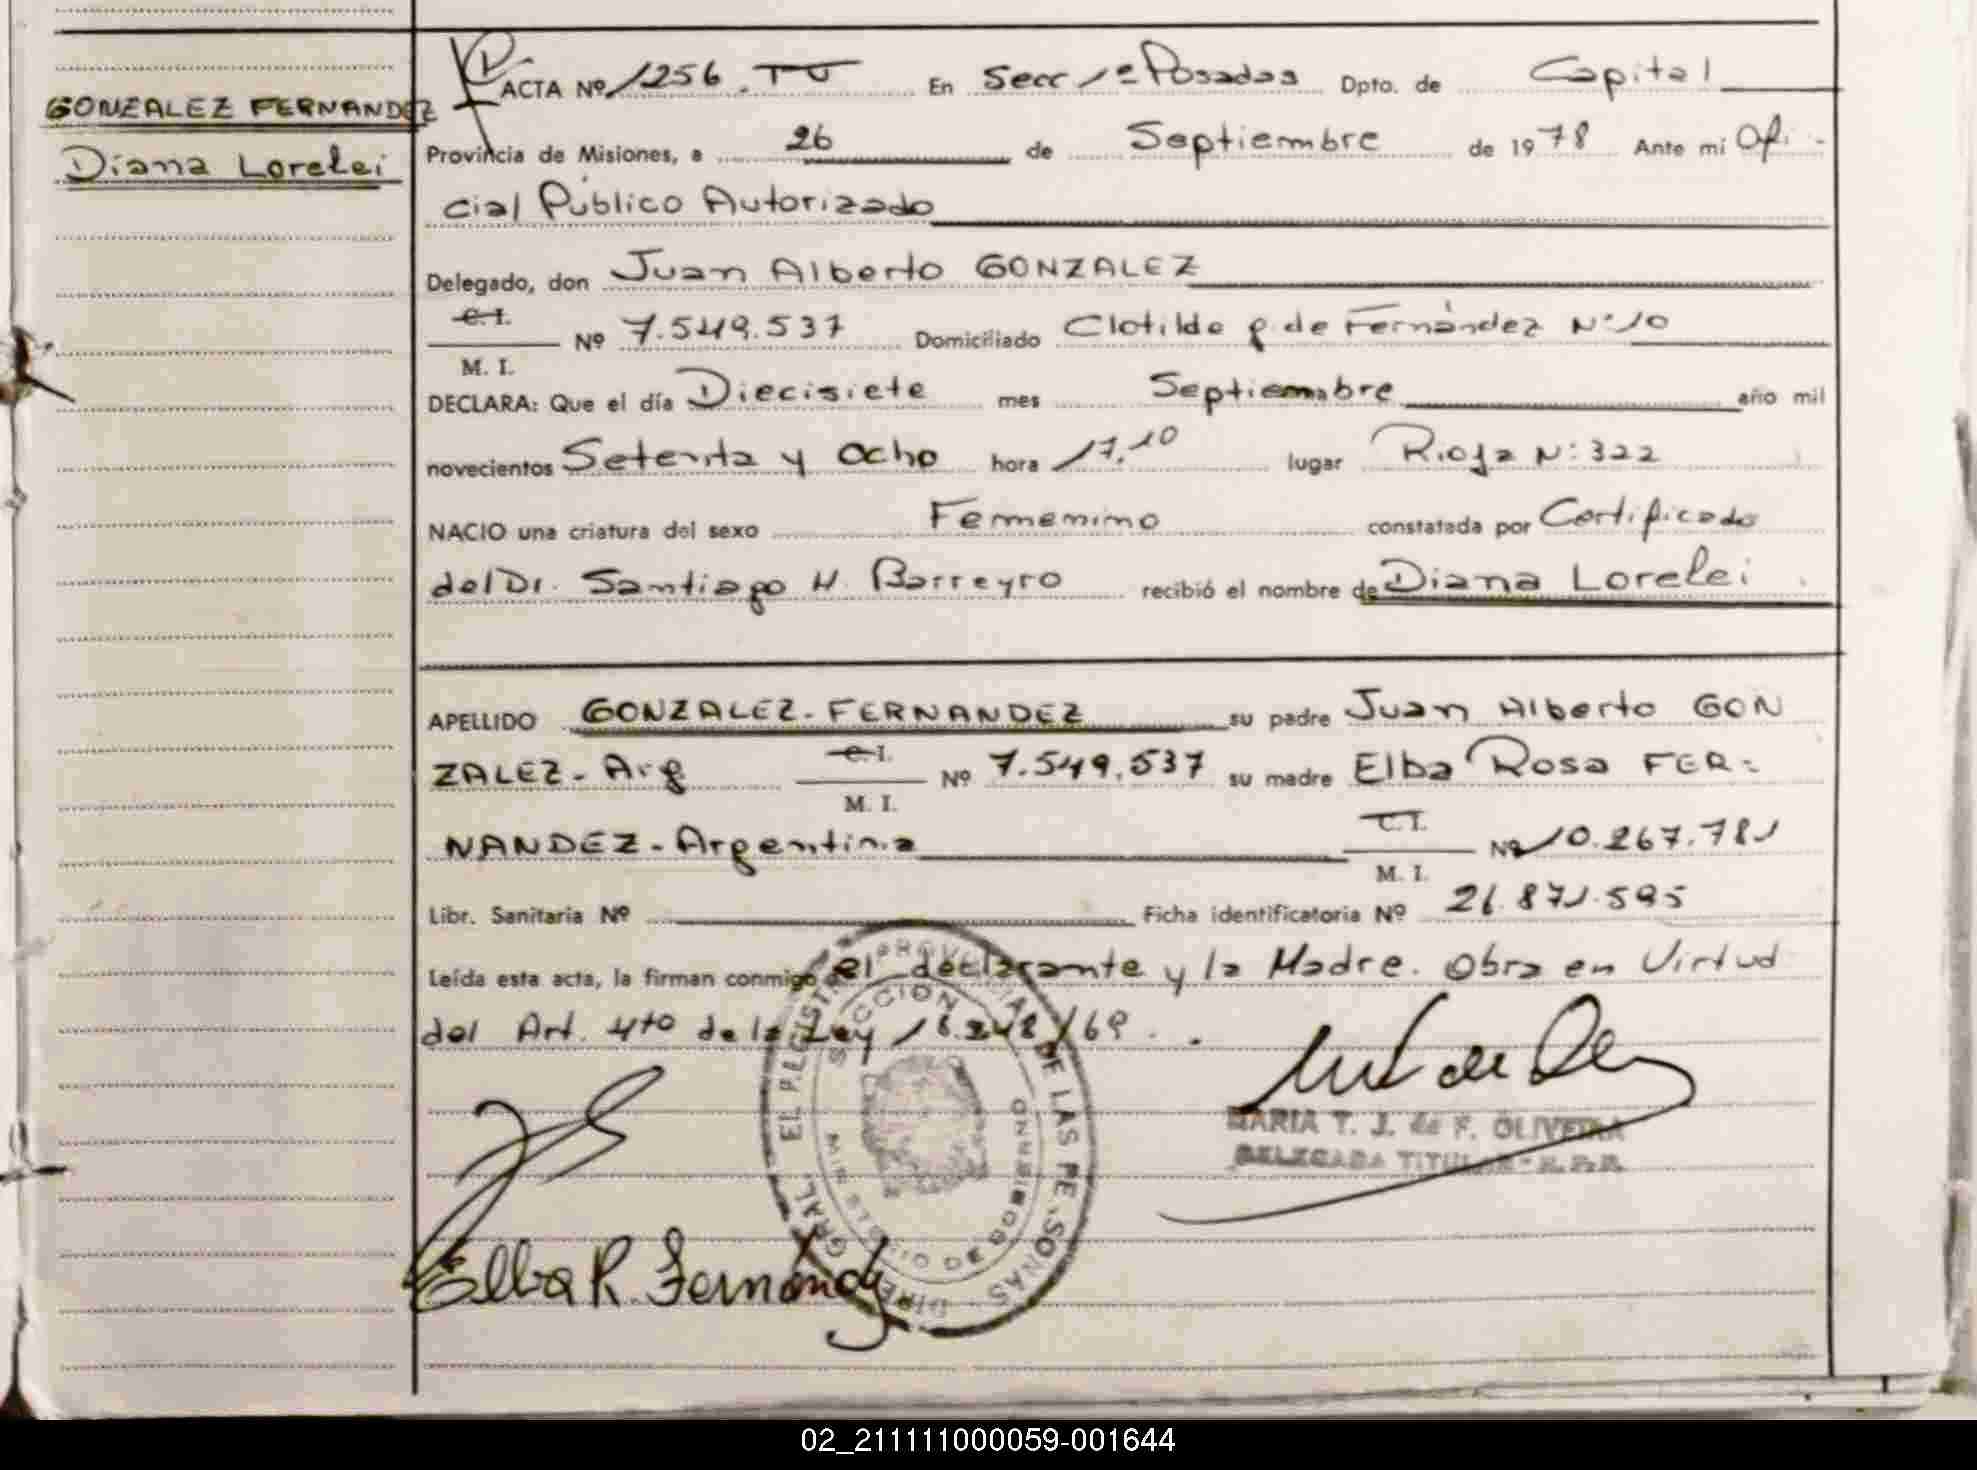 GONZALEZ FERNANDEZ
Diana Lorelei
ACTA Nº 1256. TU En Secc 1ª Posadas Dpto. de Capital
Provincia de Misiones, a 26 de Septiembre de 1978 Ante mí Ofi-
cial Público Autorizado
Delegado, don Juan Alberto GONZALEZ
C. I.
Nº 7.549.537 Domiciliado Clotilde g. de Fernández Nº 10
M. I.
DECLARA: Que el día Diecisiete mes Septiembre año mil
novecientos Setenta y Ocho hora 17.10 lugar Rioja Nº 322
NACIO una criatura del sexo Femenino constatada por Certificado
del Dr. Santiago H. Barreyro recibió el nombre de Diana Lorelei
APELLIDO GONZALEZ-FERNANDEZ su padre Juan Alberto GON
C. I.
ZALEZ- Arg Nº 7.549.537 su madre Elba Rosa FER-
M. I.
C. I.
NANDEZ-Argentina Nº 10.267.781
M. I.
Libr. Sanitaria Nº Ficha identificatoria Nº 26.871.595
Leída esta acta, la firman conmigo el declarante y la Madre. Obra en Virtud
del Art. 4to de la Ley 18.248/69.
DIRE GRAL. EL REGISTR PROVINCIAL DE LAS PERSONAS
SECCION MISIONES
MARIA T. J. de F. OLIVEIRA
DELEGADA TITULAR - R.P.P.
Elba R. Fernández
02_211111000059-001644